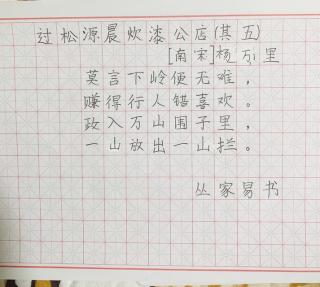 过松源晨炊漆公店(其五)
[南宋]杨万里
莫言下岭便无难，
赚得行人错喜欢。
政入万山围子里，
一山放出一山拦。
丛家易书